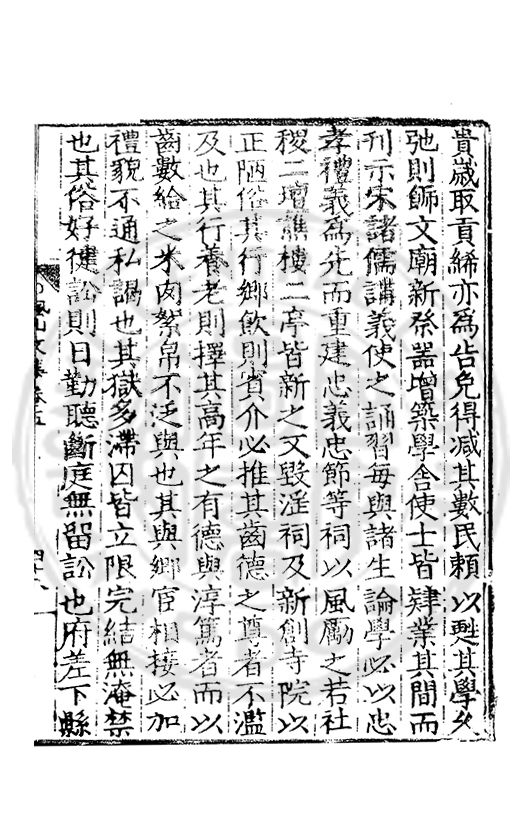 貴歲取貢絺亦爲告免得減其數民頼以甦其學久
弛則飾文廟新祭器增築學舍使士皆肄業其間而
刊示宋諸儒講義使之誦習每與諸生論學必以忠
孝禮義爲先而重建忠義忠節等祠以風勵之若社
稷二壇譙樓二亭皆新之又毀淫祠及新創寺院以
正陋俗其行鄉飲則賓介必推其齒德之尊者不濫
及也其行養老則擇其高年之有德與淳篤者而以
齒數給之米肉絮帛不泛與也其與鄉宦相接必加
禮貌不通私謁也其獄多滯囚皆立限完結無淹禁
也其俗好健訟則日勤聽斷庭無留訟也府差下縣